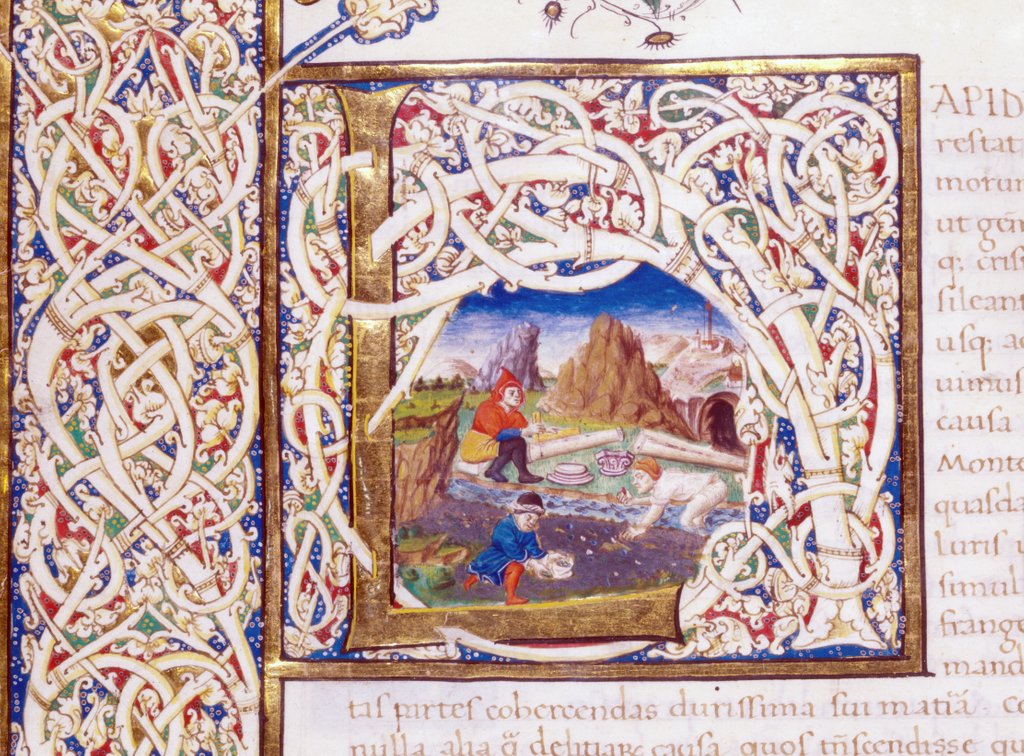 L
APID
restat
motum
ut geñ
q; cris
sileant
usq; ac
causa
Monte
quasda
luris
simul
frango
mand
tas partes cohercendas durissima sui matiã
nulla alia q̃ delitiar causa quos tñscendisse qu